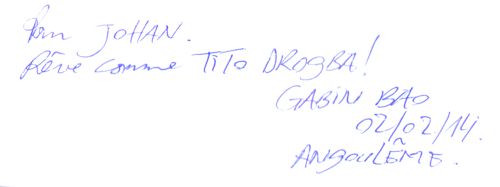 Pour JOHAN.
Rêve comme TITO DROGBA!
GABIN BAO
02/02/14.
ANGOULÊME.